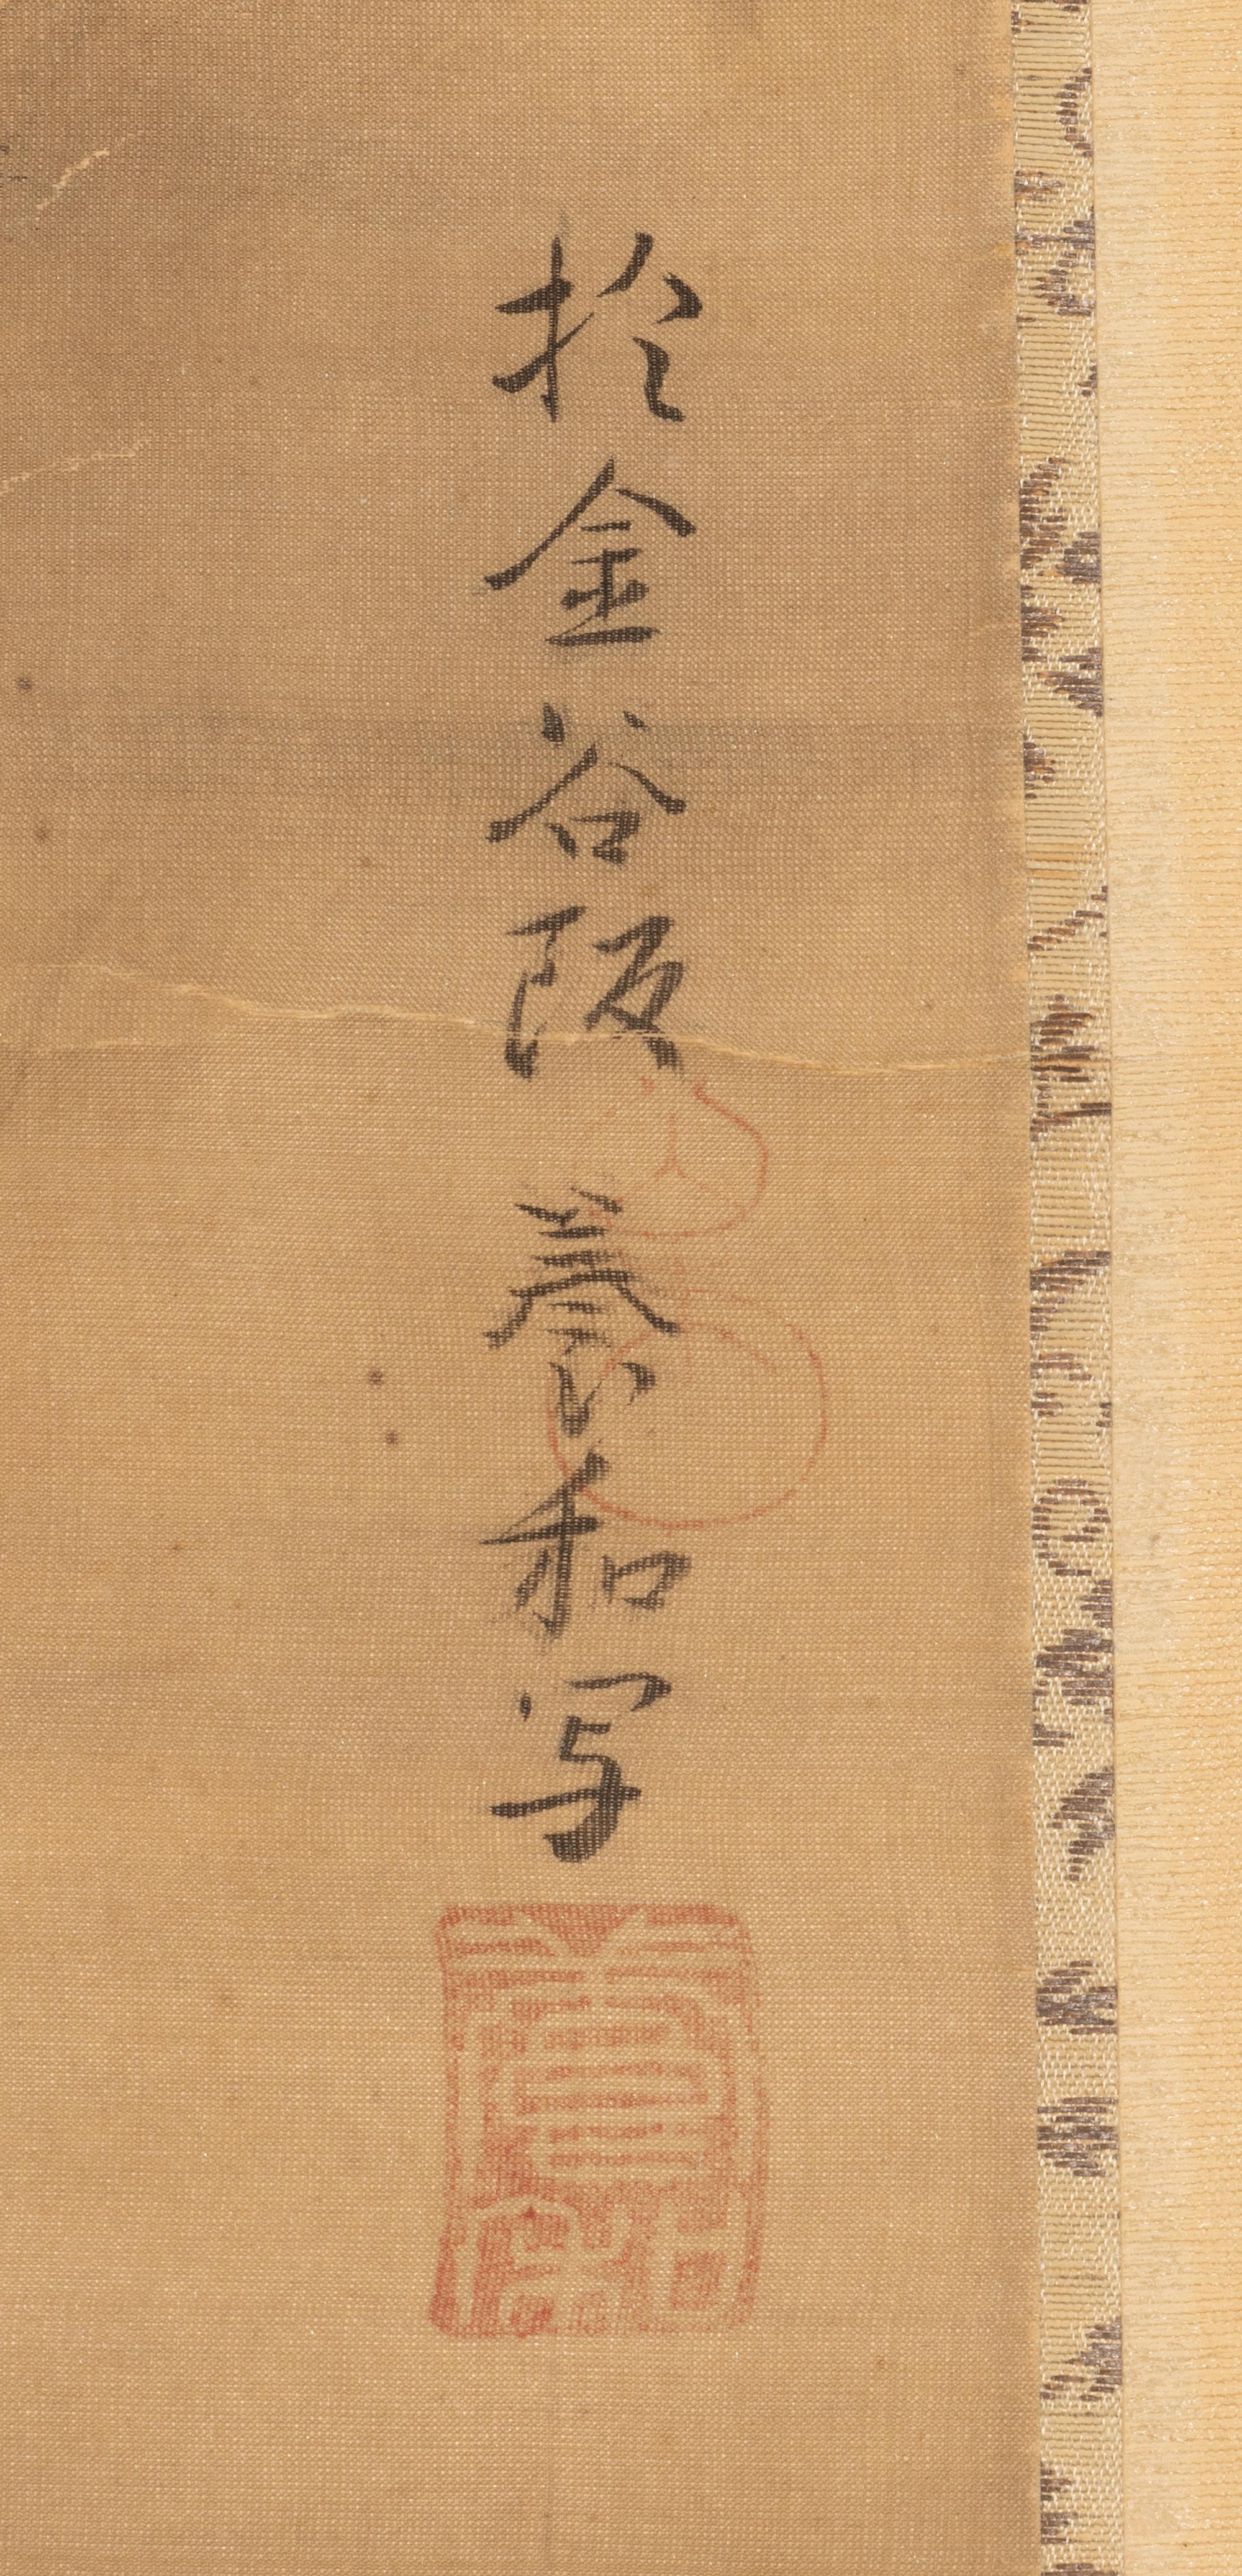 於金谷阪 養和写